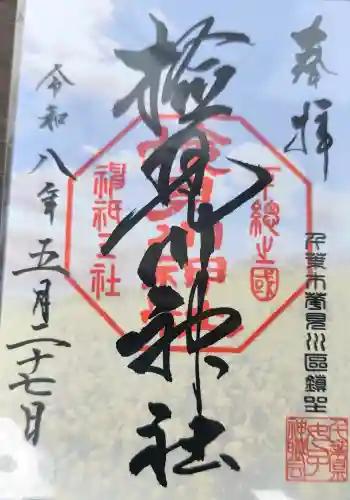 奉拝
千葉市花見川区鎮坐
下總之國
検見川神社
嵯祇三社
令和八年五月二十七日